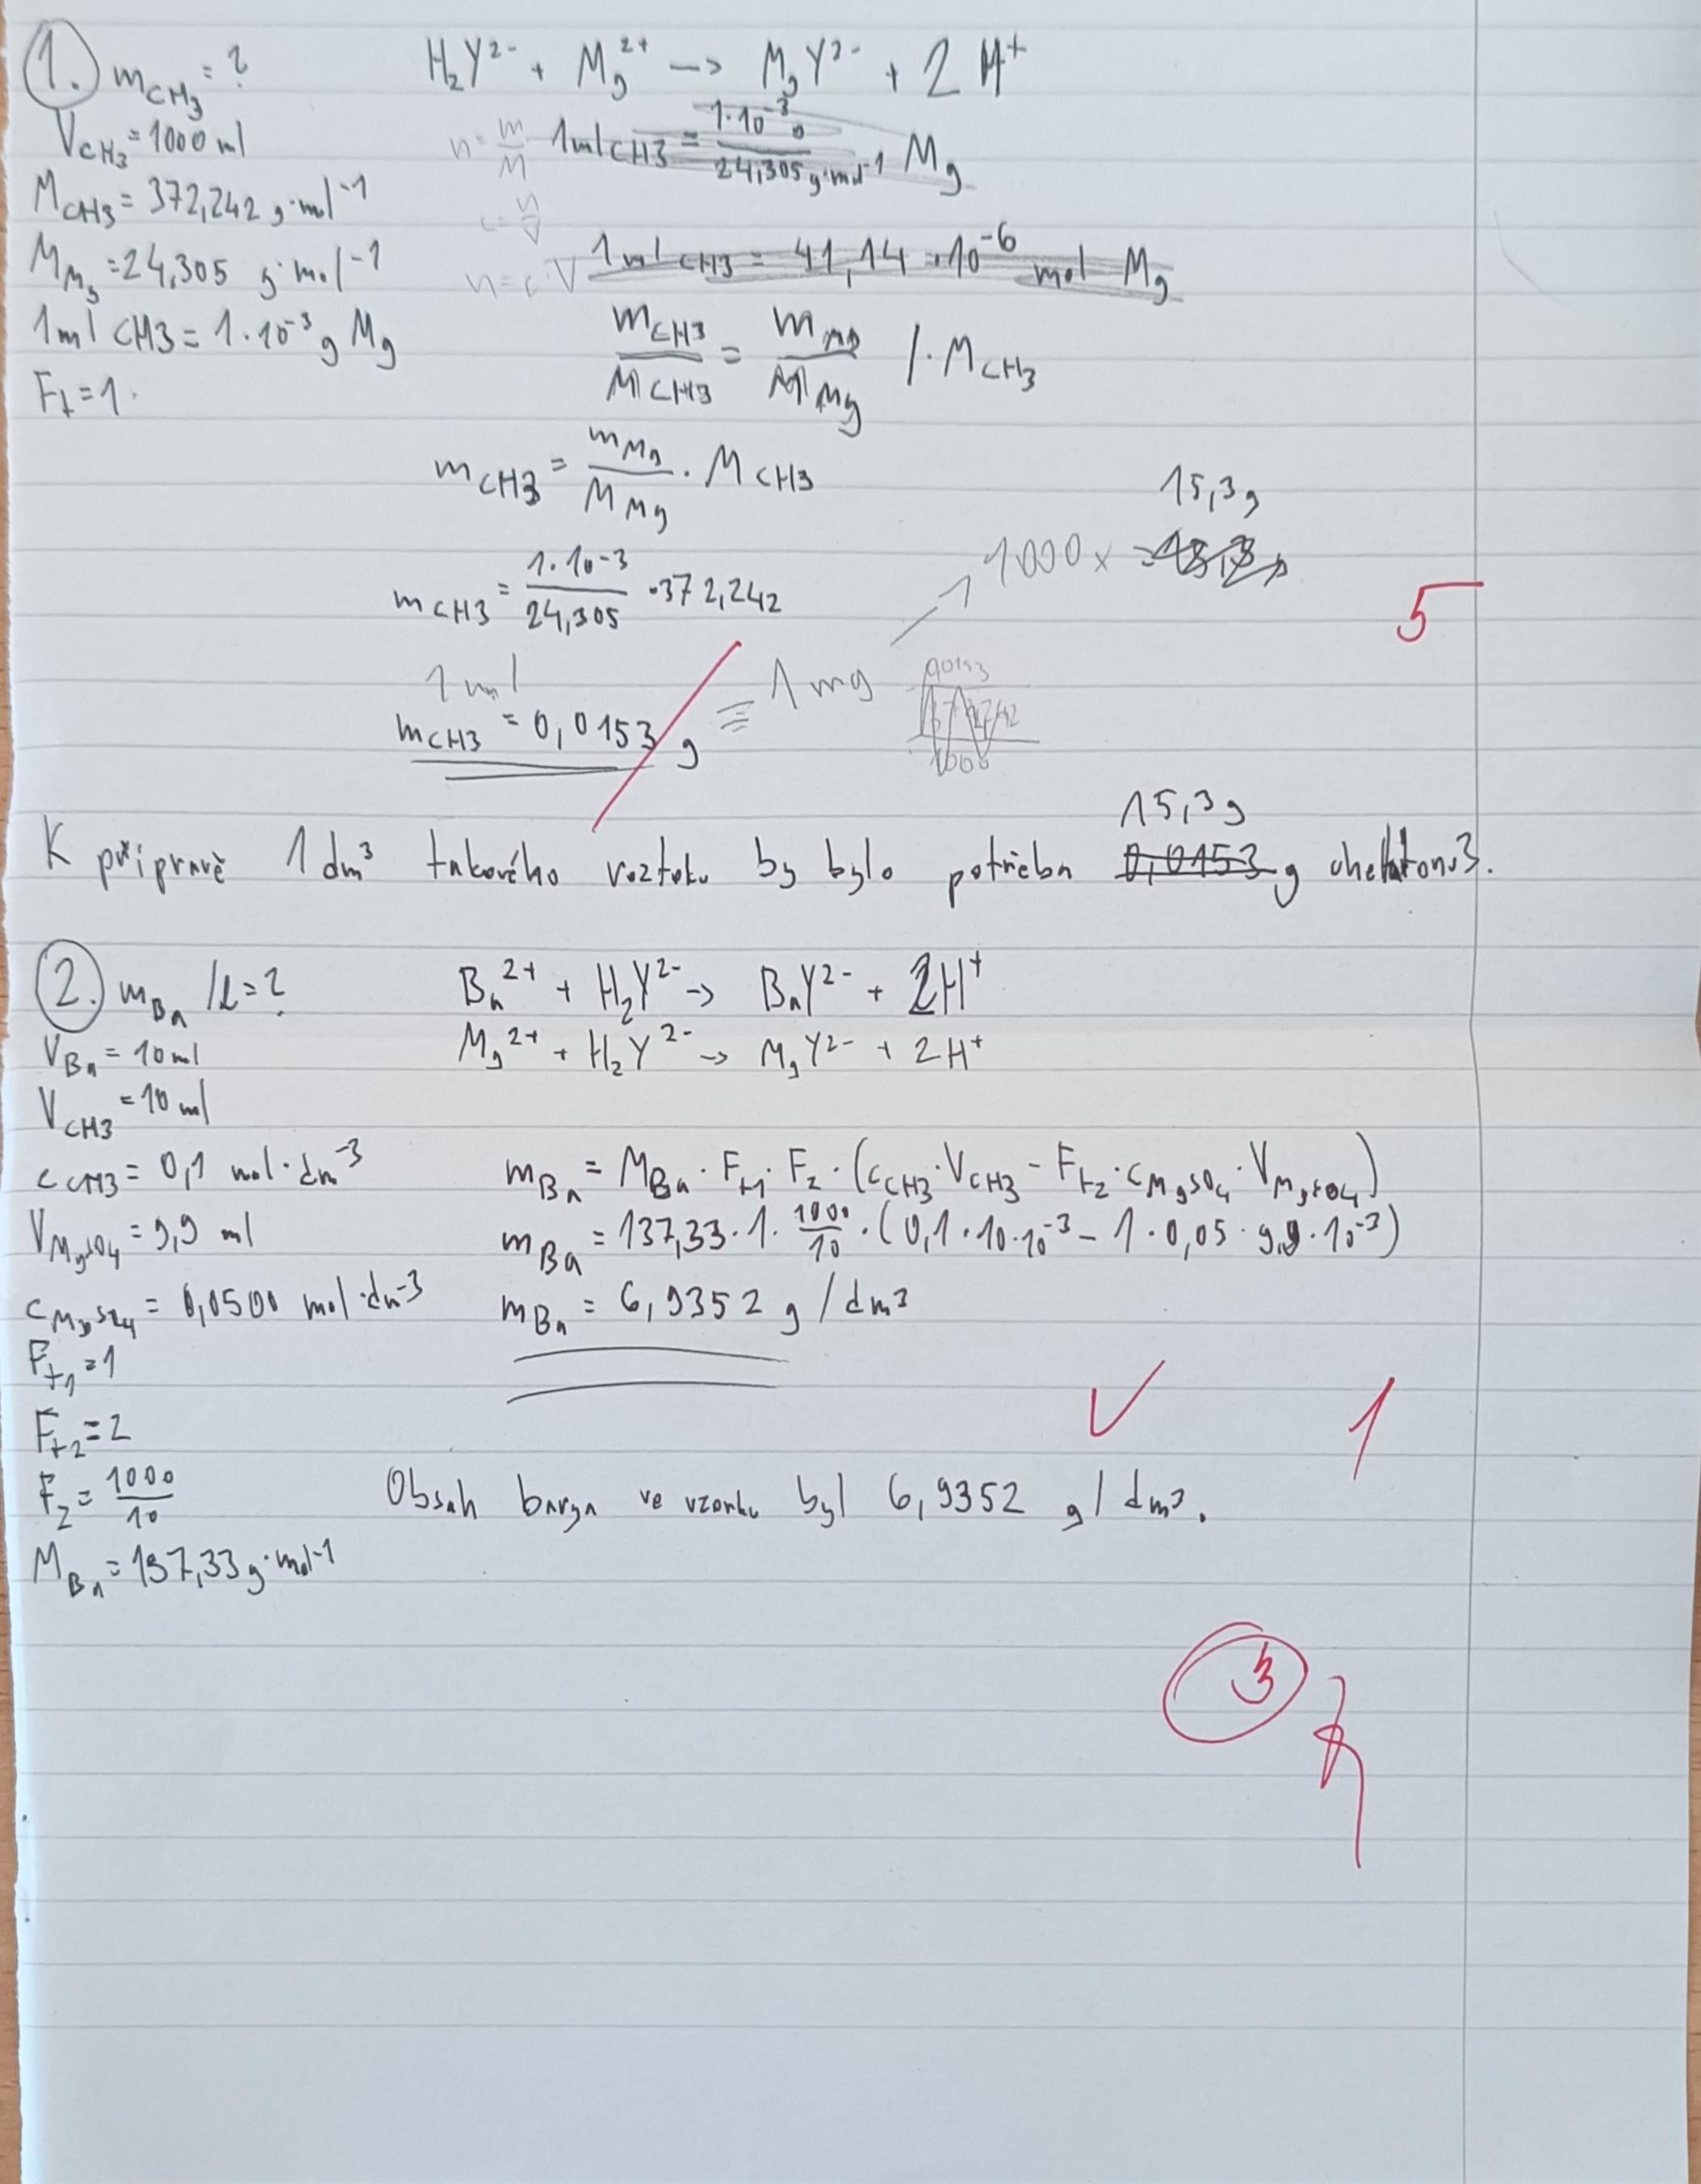 1. m_CH3 = ?
V_CH3 = 1000 ml
M_CH3 = 372,242 g·mol⁻¹
M_Mg = 24,305 g·mol⁻¹
1ml CH3 = 1·10⁻³ g Mg
F_t = 1
H₂Y²⁻ + Mg²⁺ → MgY²⁻ + 2 H⁺
n = m/M
1ml CH3 = 1·10⁻³ g / 24,305 g·mol⁻¹ Mg
c = n/V
n = c·V
1ml CH3 = 41,14·10⁻⁶ mol Mg
m_CH3/M_CH3 = m_Mg/M_Mg /·M_CH3
m_CH3 = m_Mg/M_Mg · M_CH3
15,3g
m_CH3 = 1·10⁻³/24,305 · 372,242
→ 1000 x
5
1 ml
m_CH3 = 0,0153 g ≡ 1 mg
15,3 g
K přípravě 1 dm³ takového roztoku by bylo potřeba 0,0153 g chelatonu3.
2. m_Ba /l = ?
V_Ba = 10 ml
V_CH3 = 10 ml
c_CH3 = 0,1 mol·dm⁻³
V_MgSO4 = 9,9 ml
c_MgSO4 = 0,0500 mol·dm⁻³
F_t1 = 1
F_t2 = 2
F_z = 1000/10
M_Ba = 137,33 g·mol⁻¹
Ba²⁺ + H₂Y²⁻ → BaY²⁻ + 2H⁺
Mg²⁺ + H₂Y²⁻ → MgY²⁻ + 2H⁺
m_Ba = M_Ba · F_t1 · F_z · (c_CH3 · V_CH3 − F_t2 · c_MgSO4 · V_MgSO4)
m_Ba = 137,33 · 1 · 1000/10 · (0,1 · 10·10⁻³ − 1 · 0,05 · 9,9 · 10⁻³)
m_Ba = 6,9352 g/dm³
1
Obsah barya ve vzorku byl 6,9352 g/dm³.
3